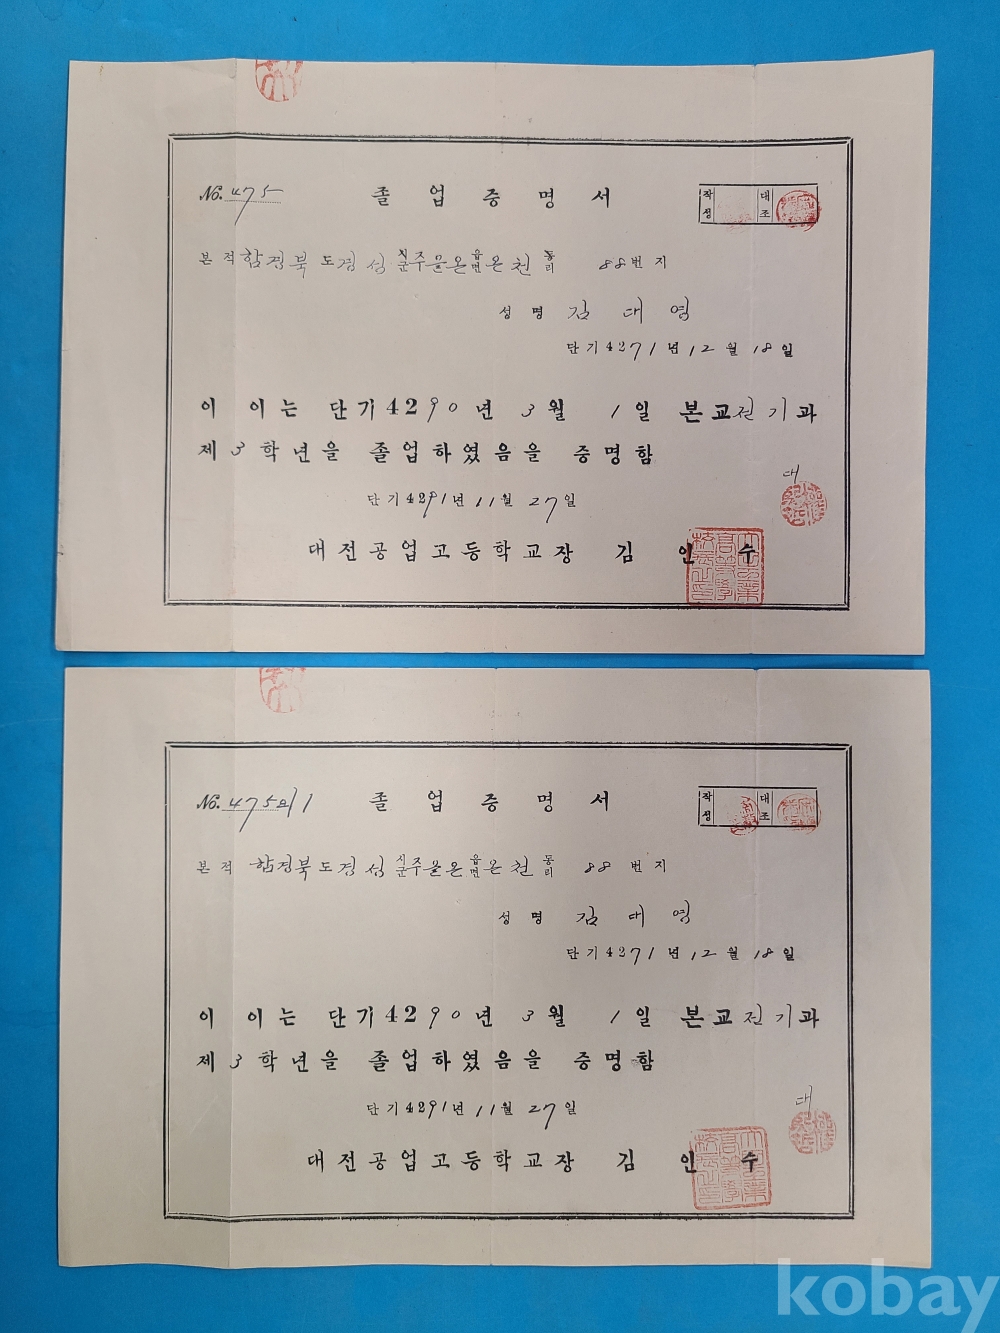 No. 475 졸업증명서 작성 대조
본적 함경북도 경성 시군 주을온 읍면 온천 동리 88번지
성명 김대영
단기 4271년 12월 18일
이 이는 단기 4290년 3월 1일 본교 전기과
제 3학년을 졸업하였음을 증명함
대
단기 4291년 11월 27일
대전공업고등학교장 김인수
No. 475의1 졸업증명서 작성 대조
본적 함경북도 경성 시군 주을온 읍면 온천 동리 88번지
성명 김대영
단기 4271년 12월 18일
이 이는 단기 4290년 3월 1일 본교 전기과
제 3학년을 졸업하였음을 증명함
대
단기 4291년 11월 27일
대전공업고등학교장 김인수
kobay